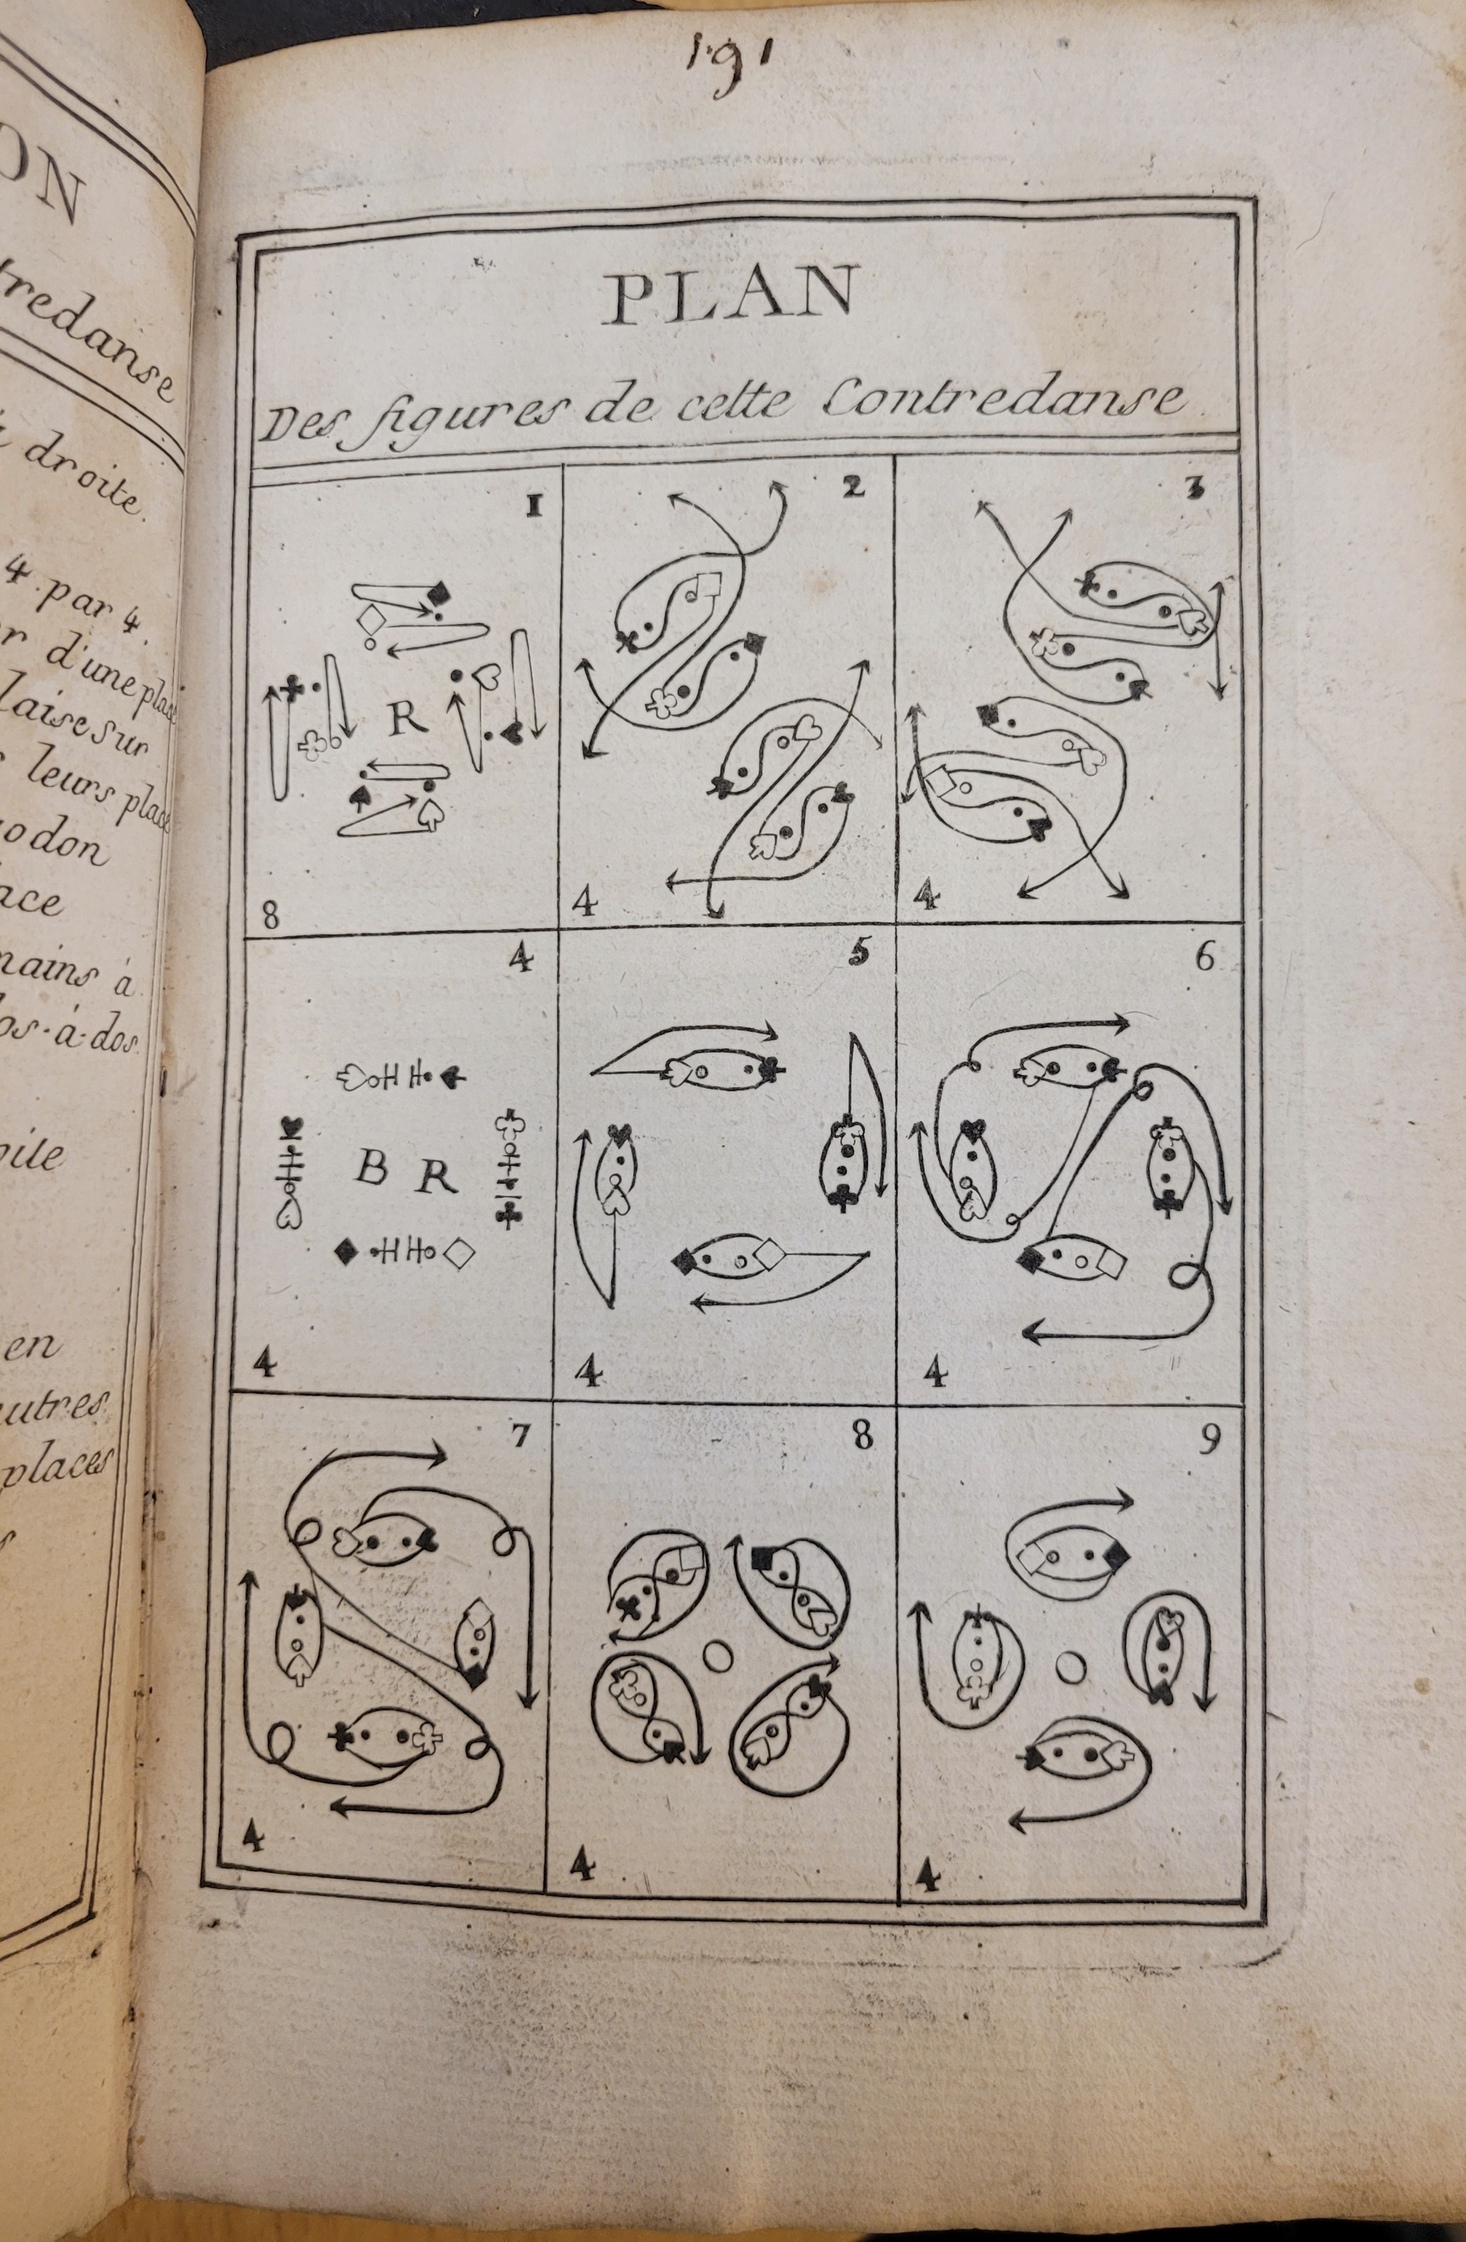 ON
tredanse
droite.
4 par 4.
d'une plac
laise sur
leurs plac
odon
ace
mains à
os-à-dos.
oile
en
autres
places
191
PLAN
Des figures de cette Contredanse
1
R
8
2
4
3
4
4
B R
4
5
4
6
4
7
4
8
4
9
4